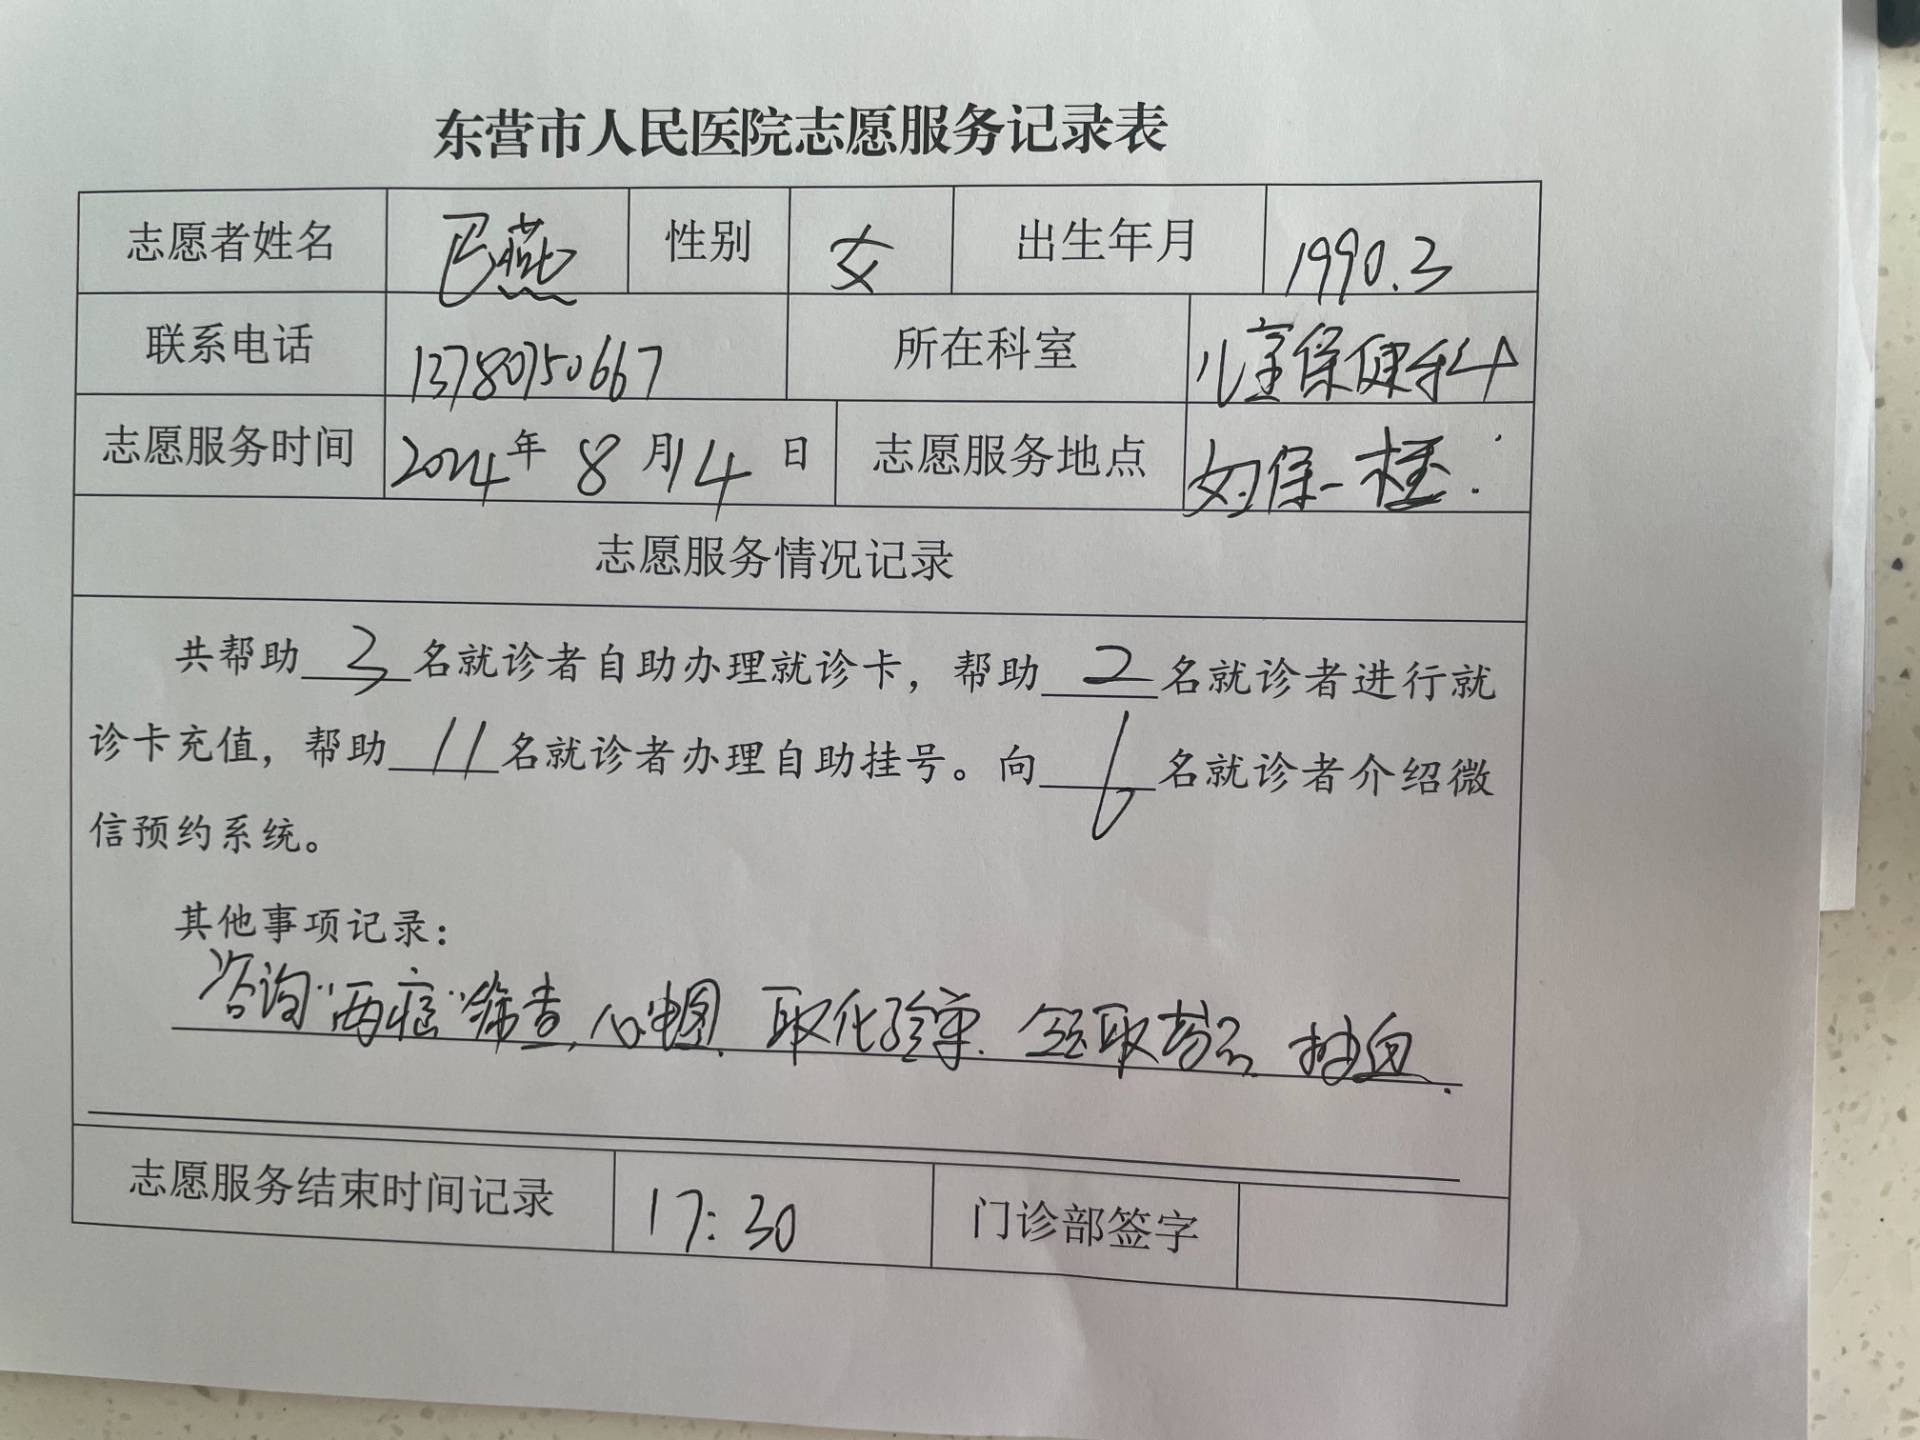 东营市人民医院志愿服务记录表
志愿者姓名 燕 性别 女 出生年月 1990.3
联系电话 13780750667 所在科室 儿童保健科
志愿服务时间 2024年 8 月14 日 志愿服务地点 妇保一楼
志愿服务情况记录
共帮助 3 名就诊者自助办理就诊卡，帮助 2 名就诊者进行就
诊卡充值，帮助 11 名就诊者办理自助挂号。向 6 名就诊者介绍微
信预约系统。
其他事项记录：
咨询“两癌”筛查,心电图.取化验单.领取药品.抽血.
志愿服务结束时间记录 17:30 门诊部签字